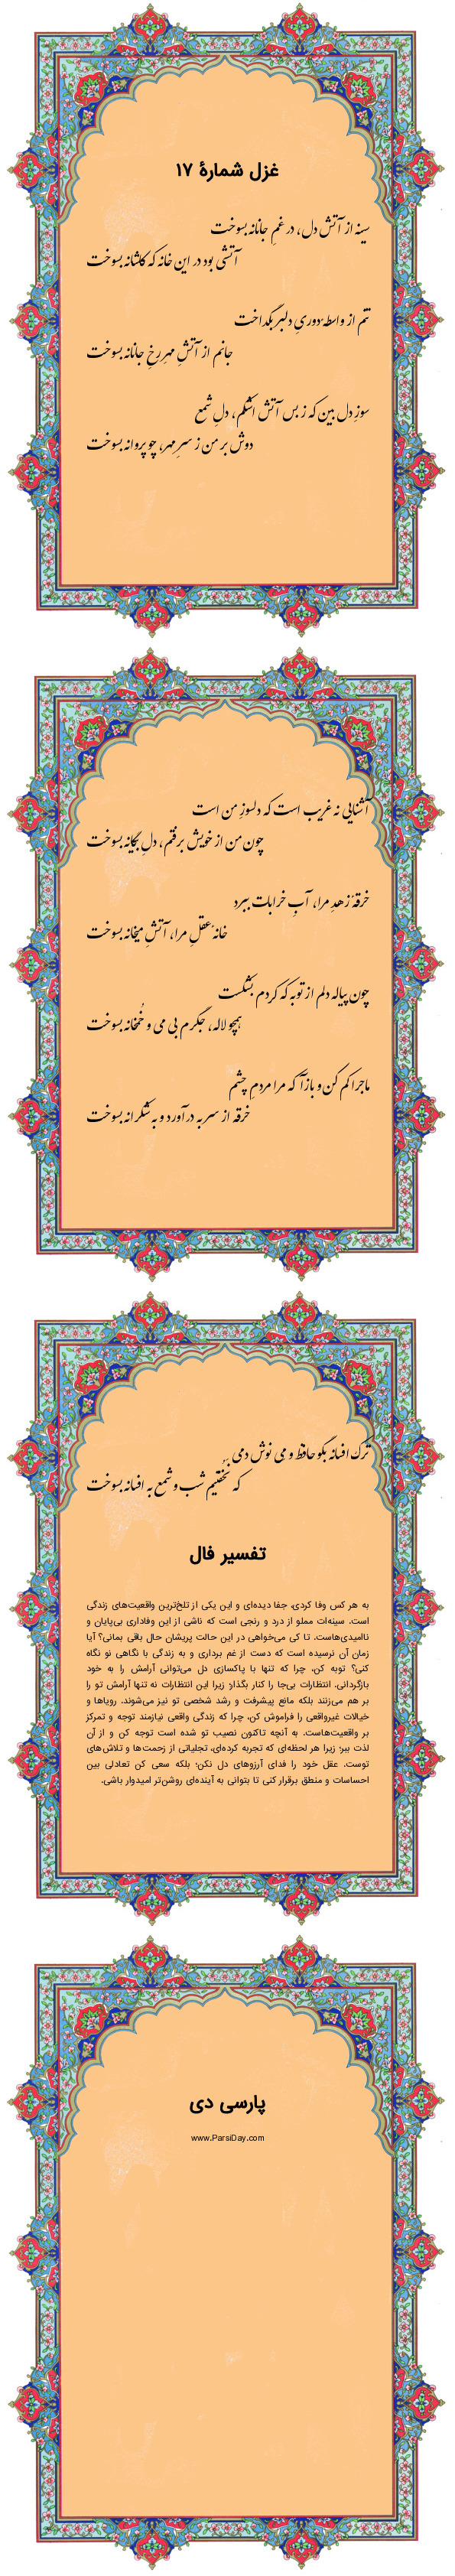 غزل شمارهٔ ۱۷
سینه از آتش دل، در غمِ جانانه بسوخت
آتشی بود در این خانه که کاشانه بسوخت
تنم از واسطهٔ دوریِ دلبر بگداخت
جانم از آتشِ مهرِ رخِ جانانه بسوخت
سوزِ دل بین که ز بس آتش اشکم، دلِ شمع
دوش بر من ز سرِ مهر، چو پروانه بسوخت
آشنایی نه غریب است که دلسوزِ من است
چون من از خویش برفتم، دلِ بیگانه بسوخت
خرقهٔ زهدِ مرا، آبِ خرابات ببرد
خانهٔ عقلِ مرا، آتشِ میخانه بسوخت
چون پیاله دلم از توبه که کردم بشکست
همچو لاله، جگرم بی می و خُمخانه بسوخت
ماجرا کم کن و بازآ که مرا مردمِ چشم
خرقه از سر به درآورد و به شکرانه بسوخت
ترک افسانه بگو حافظ و می نوش دمی
که نخفتیم شب و شمع به افسانه بسوخت
تفسیر فال
به هر کس وفا کردی، جفا دیده‌ای و این یکی از تلخ‌ترین واقعیت‌های زندگی
است. سینه‌ات مملو از درد و رنجی است که ناشی از این وفاداری بی‌پایان و
ناامیدی‌هاست. تا کی می‌خواهی در این حالت پریشان حال باقی بمانی؟ آیا
زمان آن نرسیده است که دست از غم برداری و به زندگی با نگاهی نو نگاه
کنی؟ توبه کن، چرا که تنها با پاکسازی دل می‌توانی آرامش را به خود
بازگردانی. انتظارات بی‌جا را کنار بگذار؛ زیرا این انتظارات نه تنها آرامش تو را
بر هم می‌زنند بلکه مانع پیشرفت و رشد شخصی تو نیز می‌شوند. رویاها و
خیالات غیرواقعی را فراموش کن، چرا که زندگی واقعی نیازمند توجه و تمرکز
بر واقعیت‌هاست. به آنچه تاکنون نصیب تو شده است توجه کن و از آن
لذت ببر؛ زیرا هر لحظه‌ای که تجربه کرده‌ای، تجلیاتی از زحمت‌ها و تلاش‌های
توست. عقل خود را فدای آرزوهای دل نکن؛ بلکه سعی کن تعادلی بین
احساسات و منطق برقرار کنی تا بتوانی به آینده‌ای روشن‌تر امیدوار باشی.
پارسی دی
www.ParsiDay.com